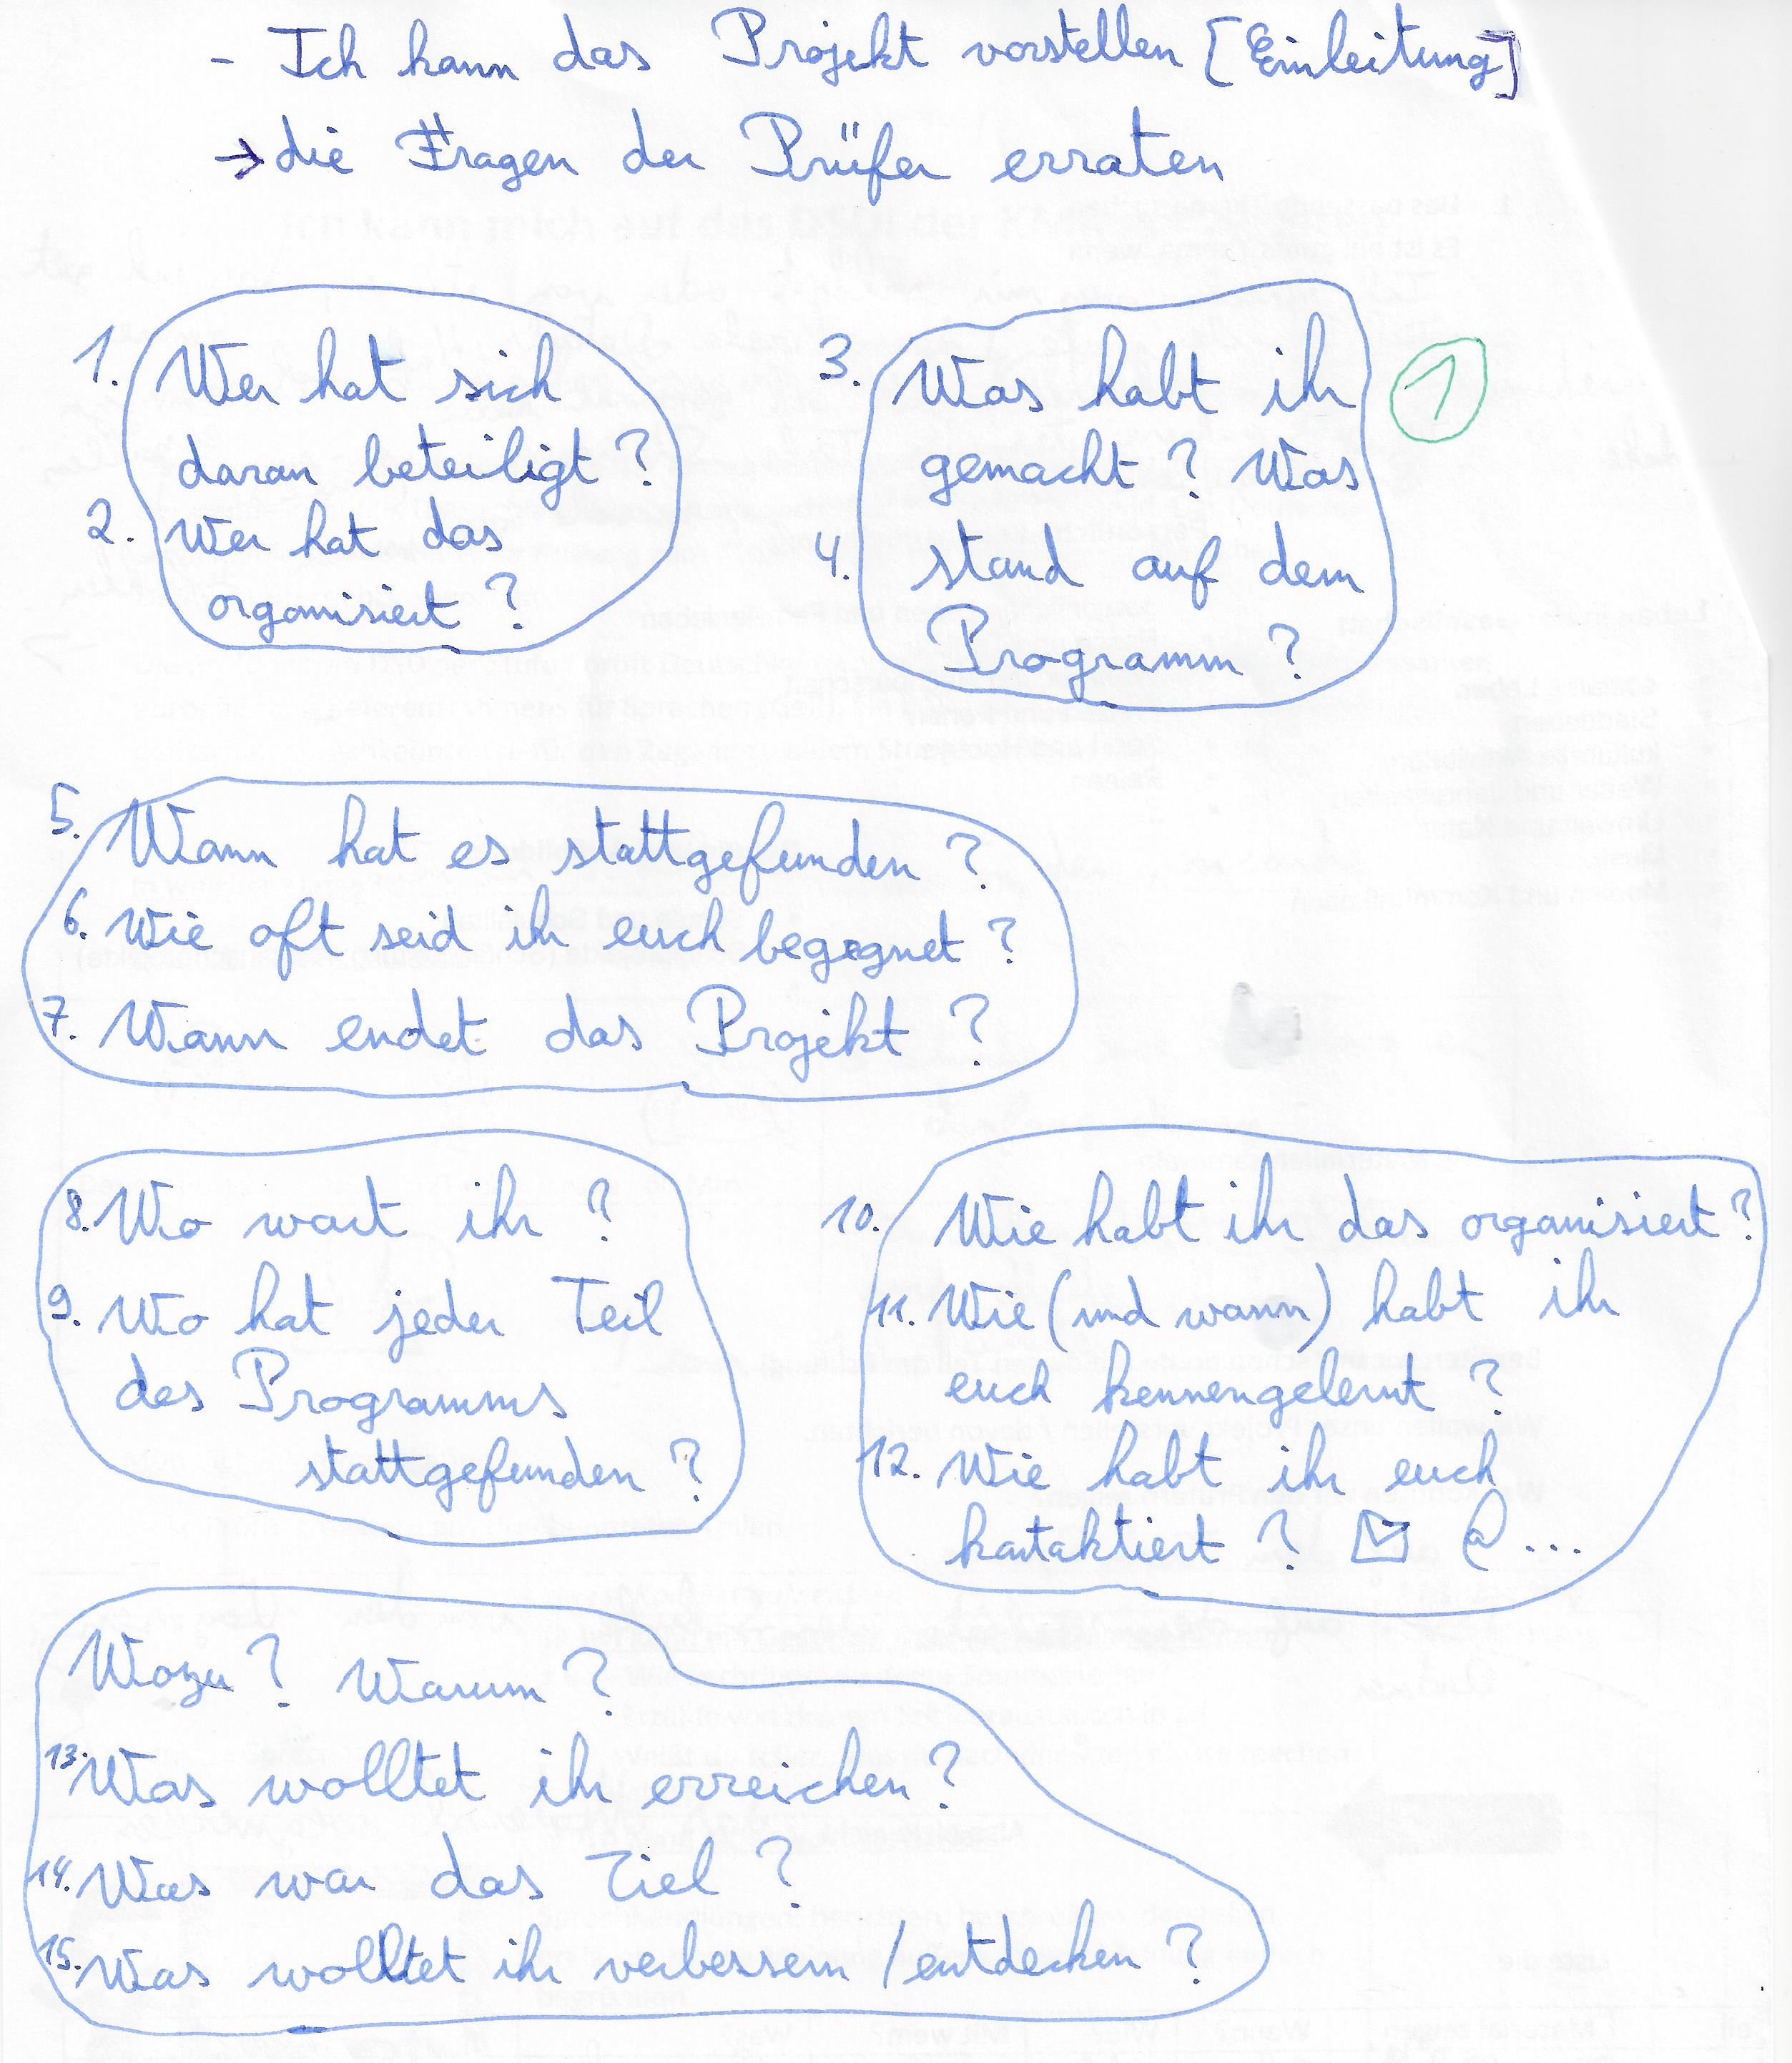 - Ich kann das Projekt vorstellen [Einleitung]
→ die Fragen der Prüfer erraten
1. Wer hat sich
daran beteiligt ?
2. Wer hat das
organisiert ?
3. Was habt ihr
gemacht ? Was
4. stand auf dem
Programm ?
1
5. Wann hat es stattgefunden ?
6. Wie oft seid ihr euch begegnet ?
7. Wann endet das Projekt ?
8. Wo wart ihr ?
9. Wo hat jeder Teil
des Programms
stattgefunden ?
10. Wie habt ihr das organisiert ?
11. Wie (und wann) habt ihr
euch kennengelernt ?
12. Wie habt ihr euch
kontaktiert ? @ ...
Wozu ? Warum ?
13. Was wolltet ihr erreichen ?
14. Was war das Ziel ?
15. Was wolltet ihr verbessern / entdecken ?